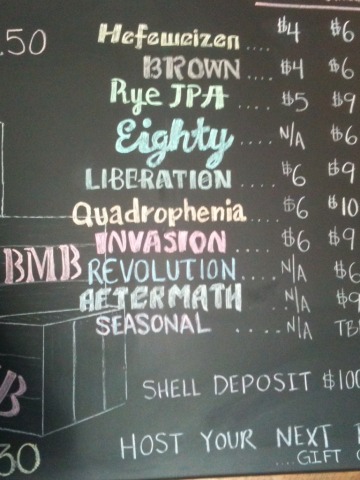 .50
Hefeweizen .... $4 $6
BROWN .... $4 $6
Rye IPA .... $5 $9
Eighty .... N/A $6
LIBERATION .... $6 $9
Quadrophenia .... $6 $10
INVASION .... $6 $9
BMB
REVOLUTION .... N/A $6
AFTERMATH .... N/A $9
SEASONAL ..... N/A TB
SHELL DEPOSIT $100
B
30
HOST YOUR NEXT
....GIFT